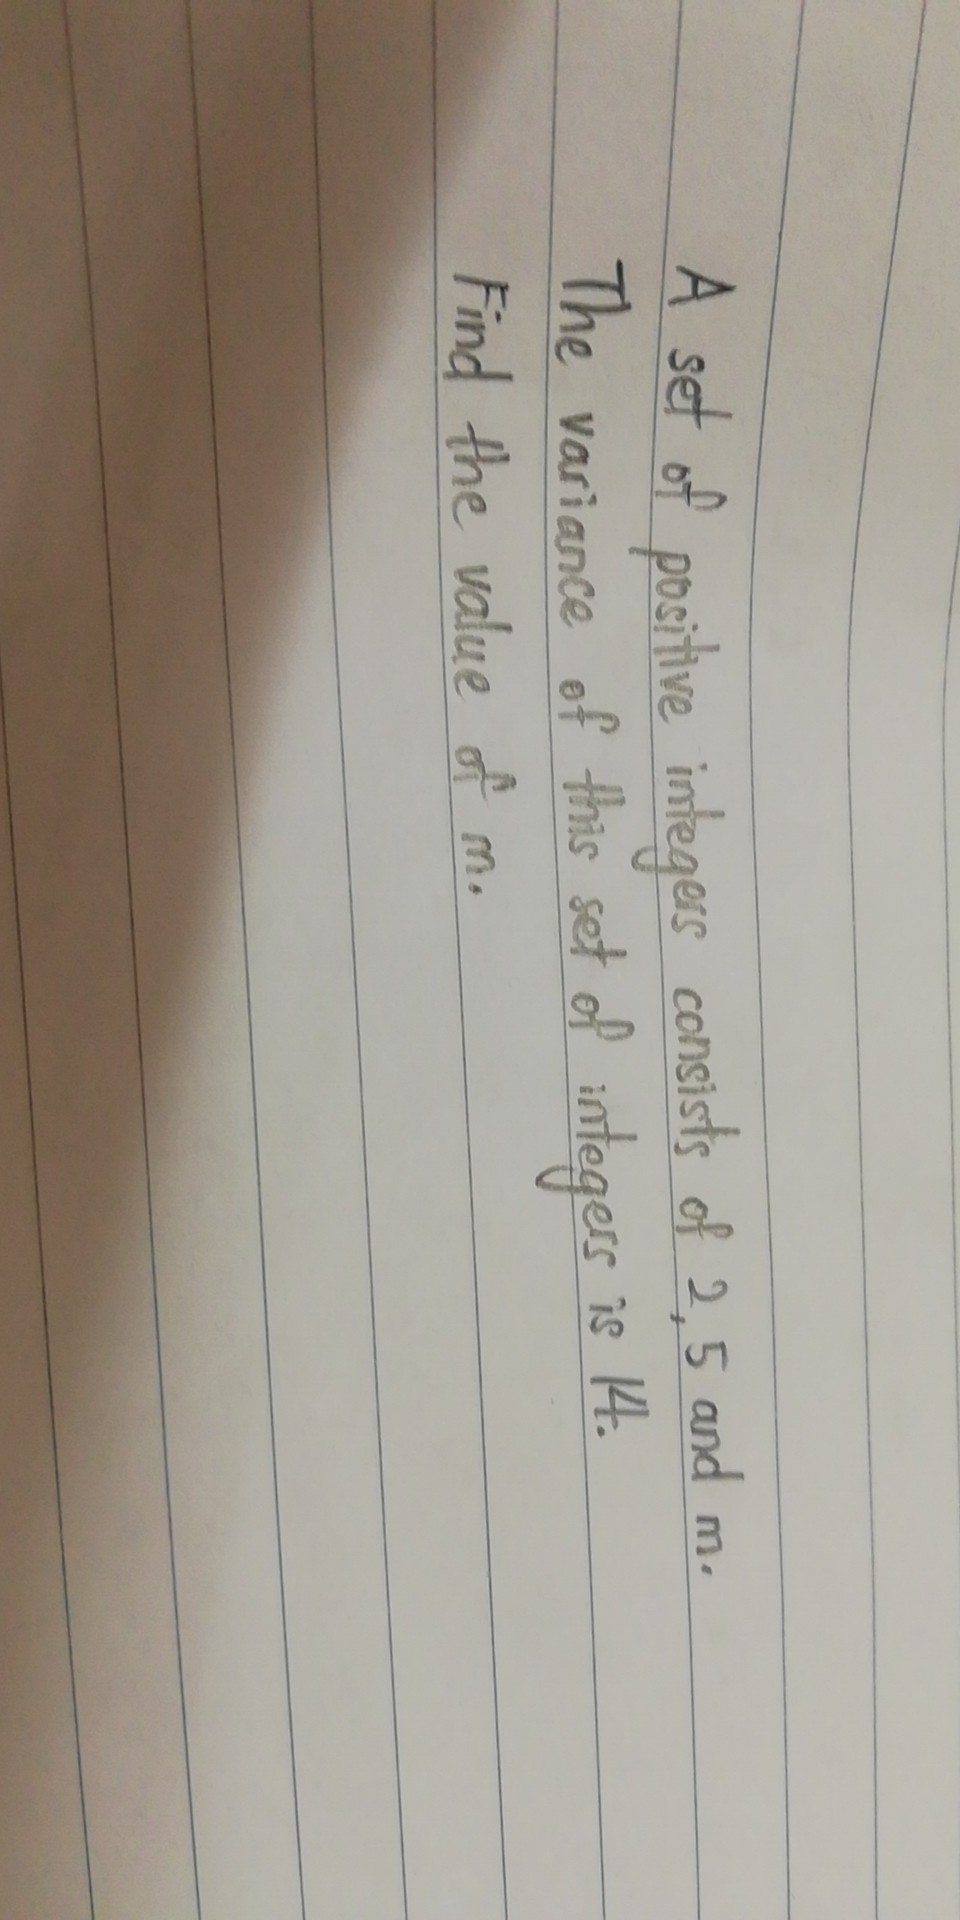 A set of positive integers consists of 2, 5 and m.
The variance of this set of integers is 14.
Find the value of m.